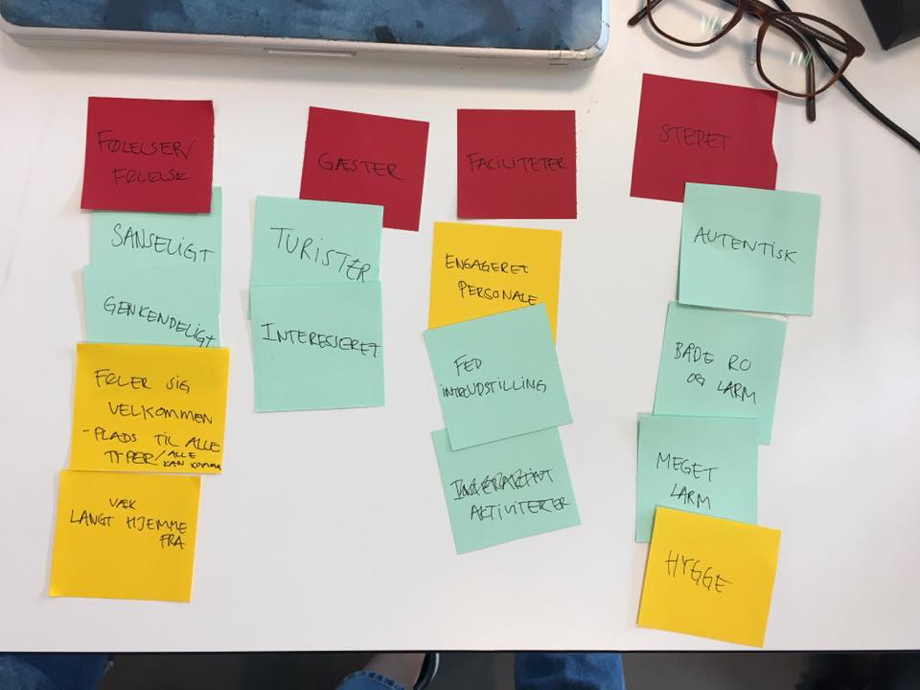 FØLELSER/
FØLELSE
SANSELIGT
GENKENDELIGT
FØLER SIG
VELKOMMEN
-PLADS TIL ALLE
TYPER/ALLE
KAN KOMME
VÆK
LANGT HJEMME
FRA
GÆSTER
TURISTER
INTERESSERET
FACILITETER
ENGAGERET
PERSONALE
FED
UDSTILLING
AKTIVITETER
STEDET
AUTENTISK
BÅDE RO
OG LARM
MEGET
LARM
HYGGE